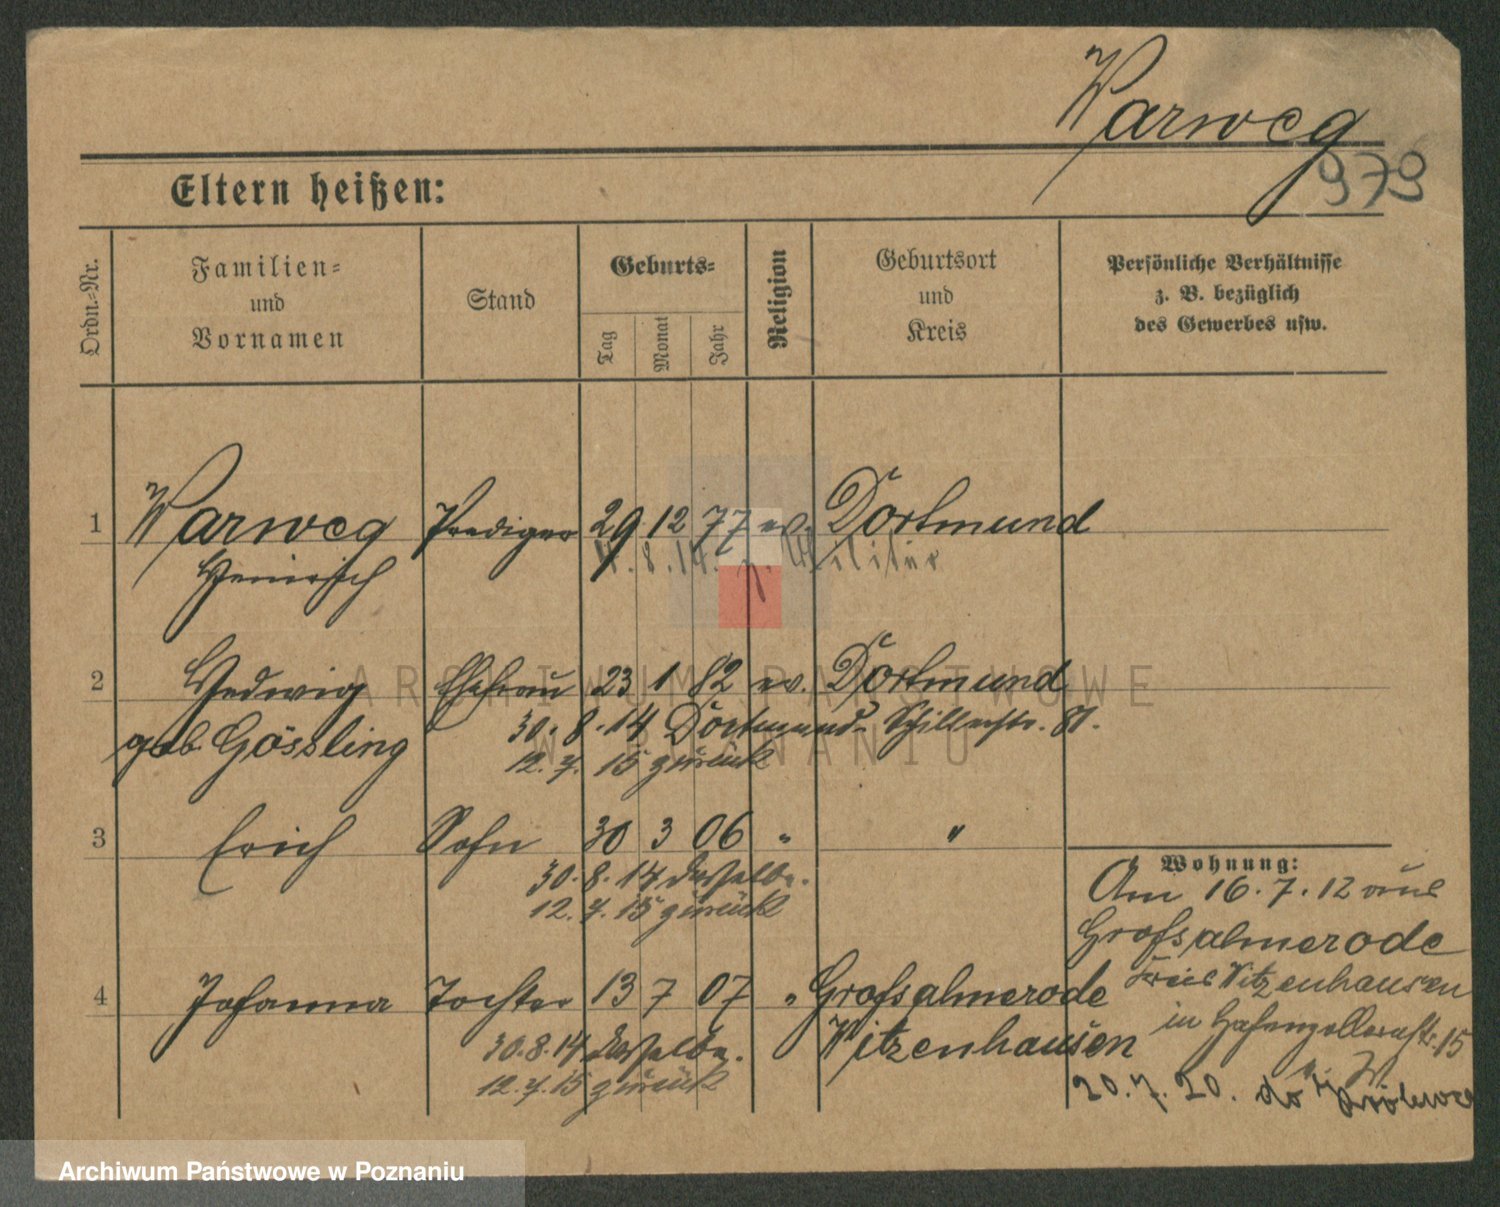 Warweg
979
Eltern heißen:
Ordn.-Nr.
Familien-
und
Vornamen
Stand
Geburts-
Tag
Monat
Jahr
Religion
Geburtsort
und
Kreis
Persönliche Verhältnisse
z. B. bezüglich
des Gewerbes usw.
1 Warweg Prediger 29 12 77 ev. Dortmund
Heinrich
4. 8. 14. z. Militär
2 Hedwig Ehefrau 23 1 82 ev. Dortmund
geb. Gössling
30. 8. 14 Dortmund. Schillerstr. 81.
12. 7. 15 zurück
3 Erich Sohn 30 3 06 " "
30. 8. 14 dasselbe.
12. 7. 15 zurück
4 Johanna Tochter 13 7 07 " Grossalmerode
Witzenhausen
30. 8. 14 dasselbe.
12. 7. 15 zurück
Wohnung:
Am 16. 7. 12 aus
Grossalmerode
Kreis Witzenhausen
in Hohenzollernstr. 15
20. 7. 20.
ARCHIWUM PAŃSTWOWE
W POZNANIU
Archiwum Państwowe w Poznaniu